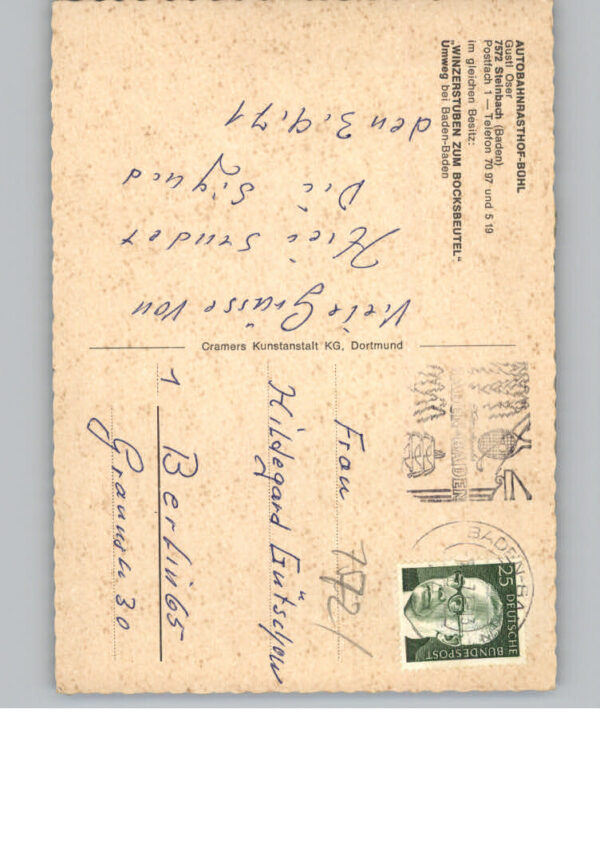 AUTOBAHNRASTHOF-BÜHL
Gustl Oser
7572 Steinbach (Baden)
Postfach 1 — Telefon 70 97 und 5 19
im gleichen Besitz:
„WINZERSTUBEN ZUM BOCKSBEUTEL“
Umweg bei Baden-Baden
den 3.9.71
Viele Grüsse von
Hier sendet
Die Sigrid
Cramers Kunstanstalt KG, Dortmund
BADEN-BADEN
BADEN-BA
25 DEUTSCHE
BUNDESPOST
Frau
Hildegard Gütschow
1 Berlin 65
30